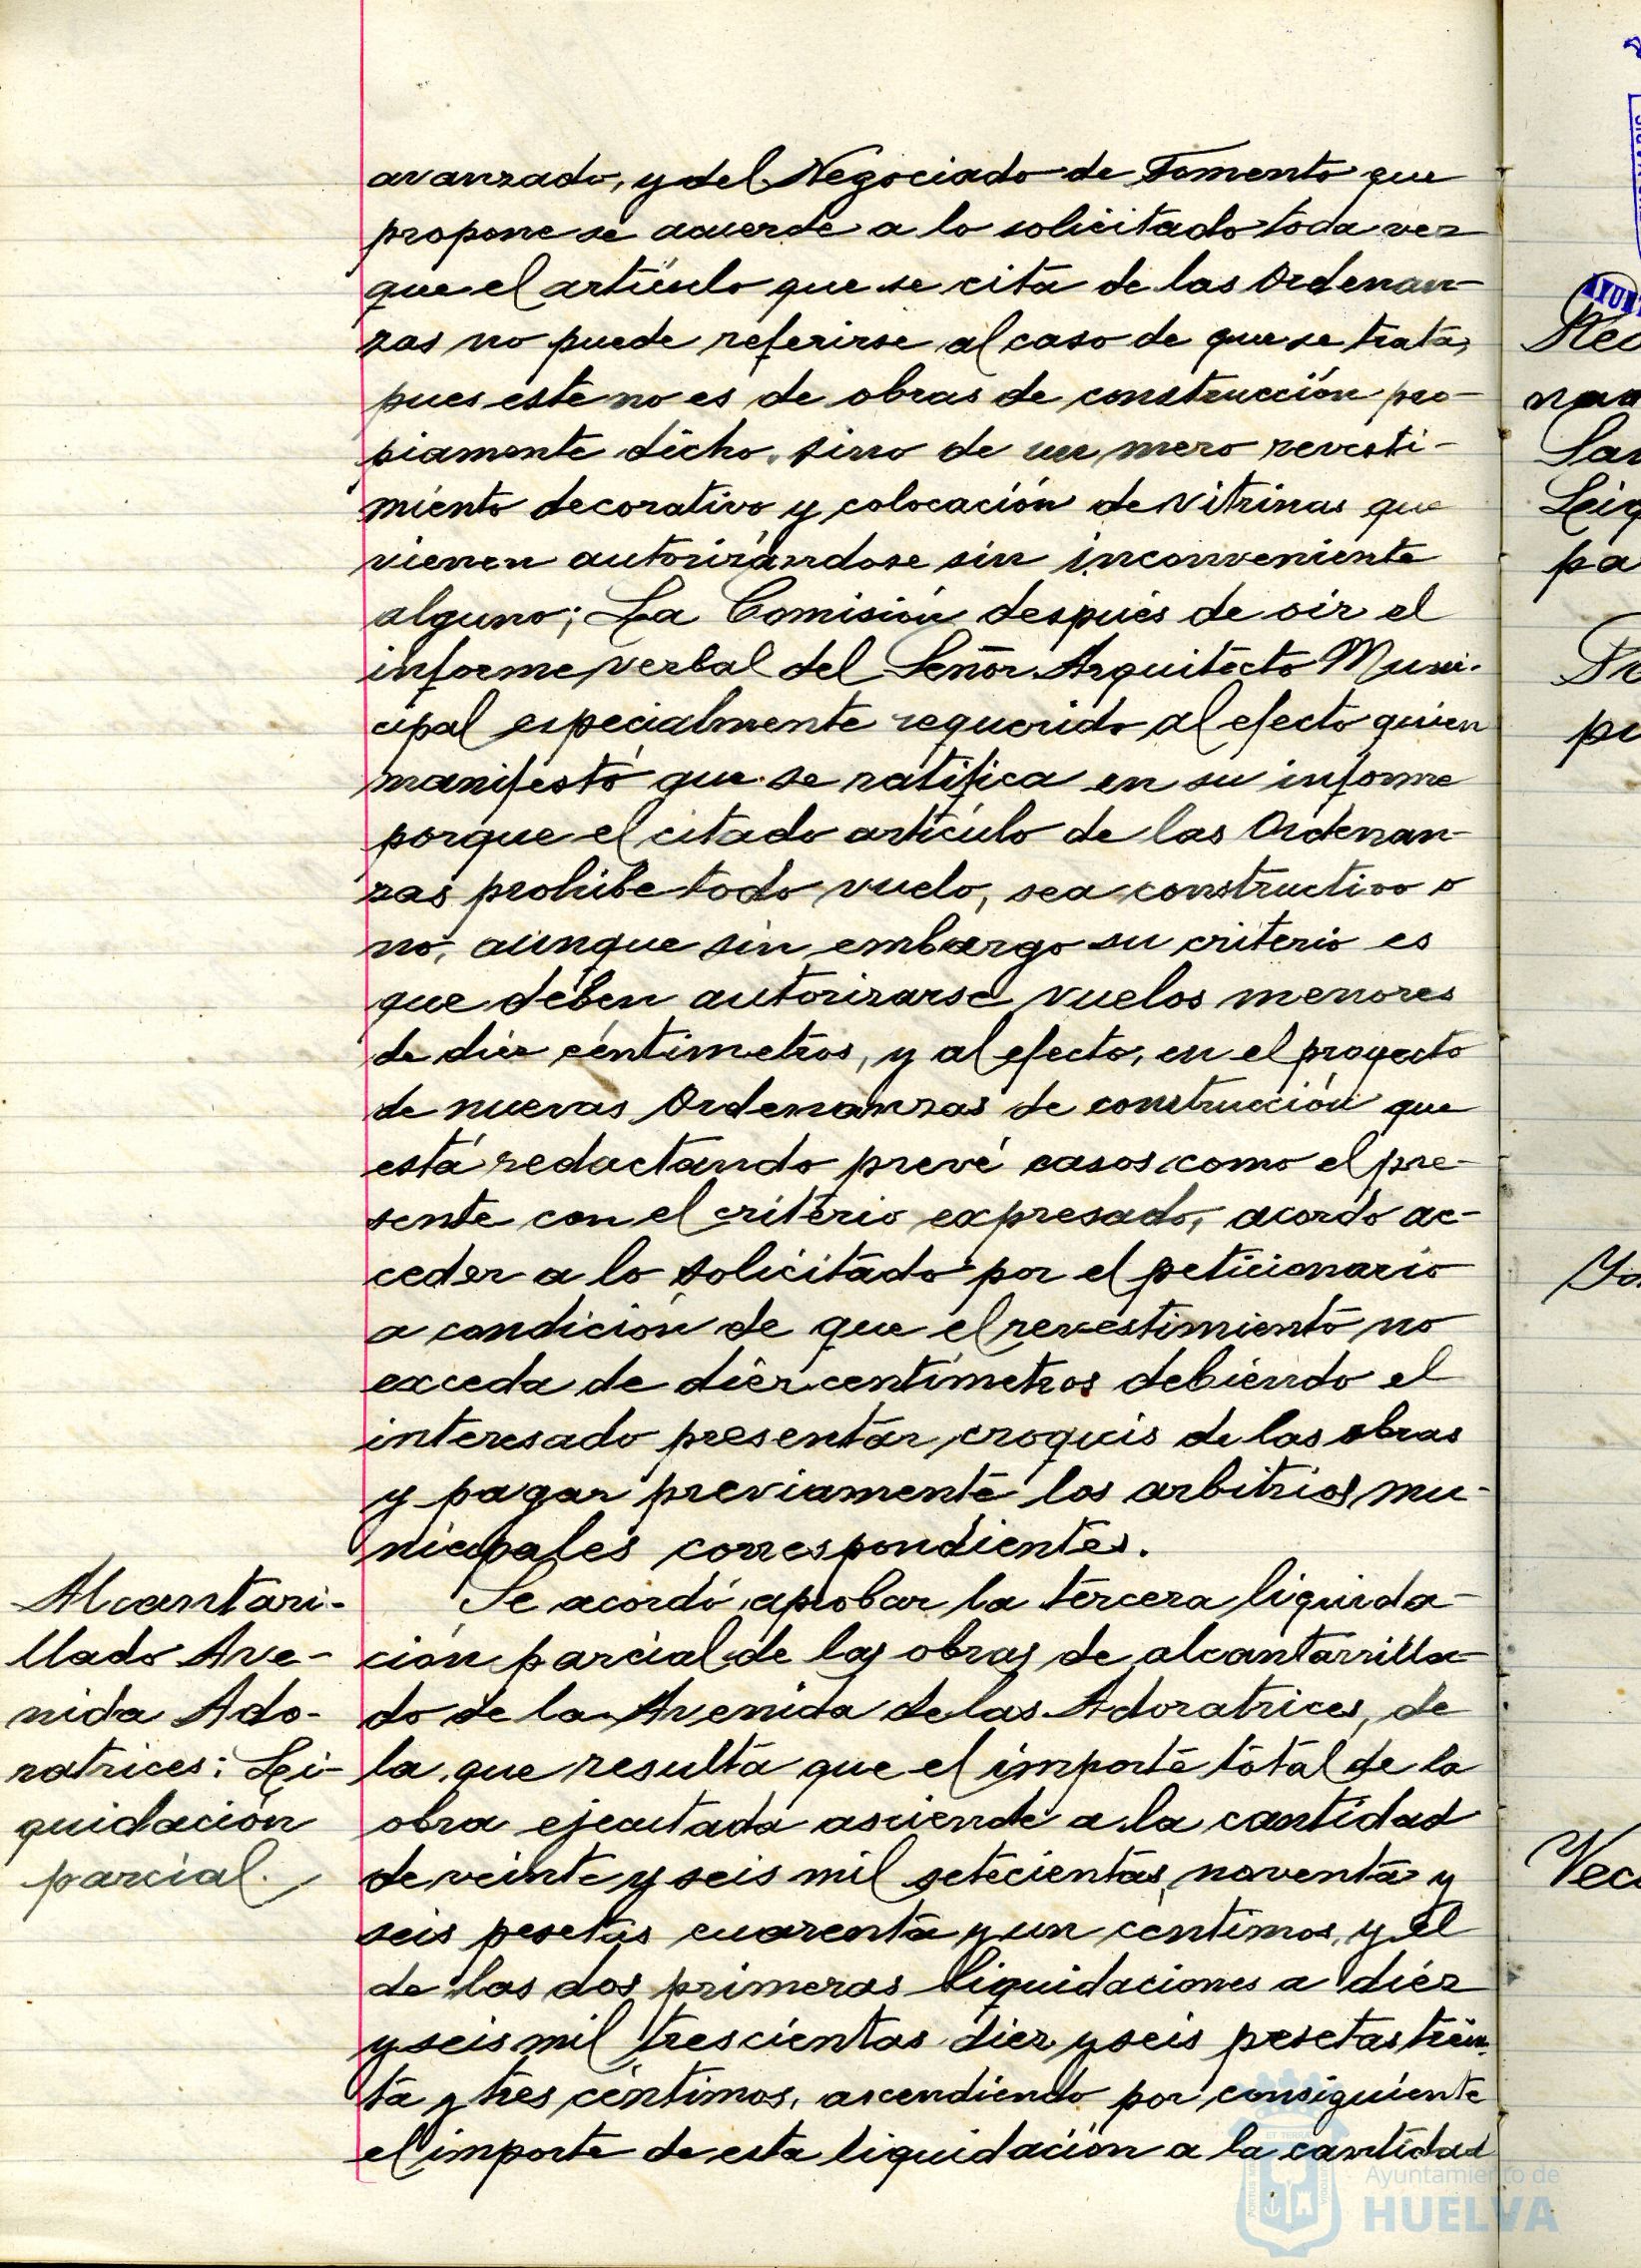 avanzado, y del Negociado de Fomento que
propone se acuerde a lo solicitado toda vez
que el artículo que se cita de las Ordenan-
zas no puede referirse al caso de que se trata,
pues este no es de obras de construcción pro-
piamente dicho, sino de un mero revesti-
miento decorativo y colocación de vitrinas que
vienen autorizándose sin inconveniente
alguno; La Comisión después de oir el
informe verbal del Señor Arquitecto Muni-
cipal especialmente requerido al efecto quien
manifestó que se ratifica en su informe
porque el citado artículo de las Ordenan-
zas prohibe todo vuelo, sea constructivo o
no, aunque sin embargo su criterio es
que deben autorizarse vuelos menores
de diez céntimetros, y al efecto, en el proyecto
de nuevas Ordenanzas de construcción que
está redactando prevé casos como el pre-
sente con el criterio expresado, acordó ac-
ceder a lo solicitado por el peticionario
a condición de que el revestimiento no
exceda de diez centímetros debiendo el
interesado presentar croquis de las obras
y pagar previamente los arbitrios mu-
nicipales correspondientes.
Alcantari-
llado Ave-
nida Ado-
ratrices: Li-
quidación
parcial.
Se acordó aprobar la tercera liquida-
ción parcial de las obras de alcantarilla-
do de la Avenida de las Adoratrices, de
la que resulta que el importe total de la
obra ejecutada asciende a la cantidad
de veinte y seis mil setecientas noventa y
seis pesetas cuarenta y un céntimos, y el
de las dos primeras liquidaciones a diez
y seis mil trescientas diez y seis pesetas trein-
ta y tres céntimos, ascendiendo por consiguiente
el importe de esta liquidación a la cantidad
Ayuntamiento de
HUELVA